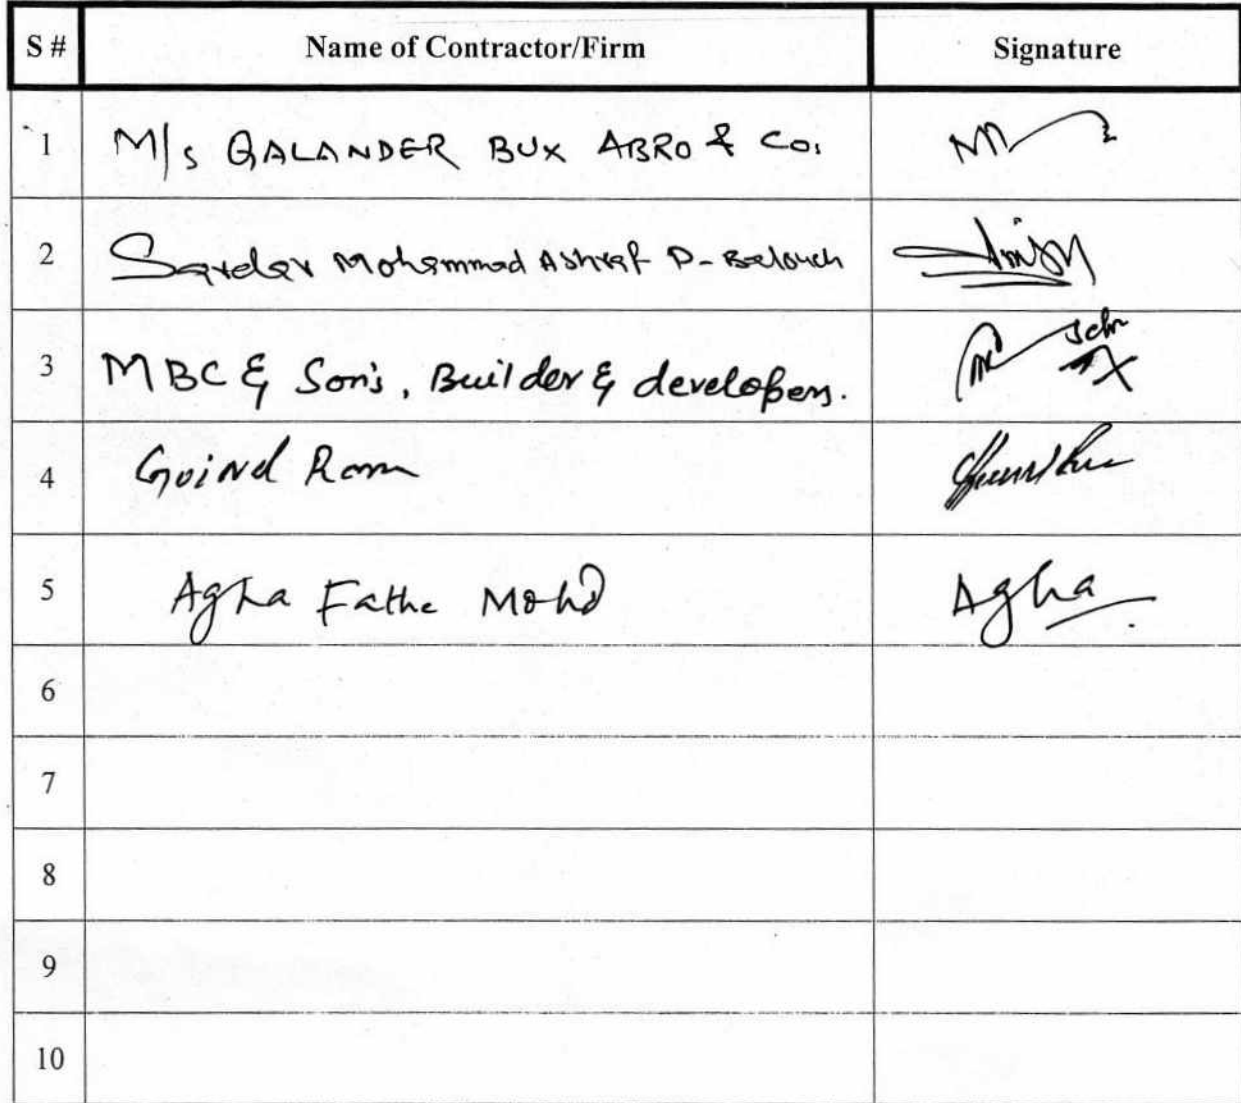 S # Name of Contractor/Firm Signature
1 M/s QALANDER BUX ABRO & Co.
2 Sardar Mohammad Ashraf D-Balouch
3 MBC & Son's, Builder & developers.
4 Goind Ram
5 Agha Fathe Mohd Agha
6
7
8
9
10